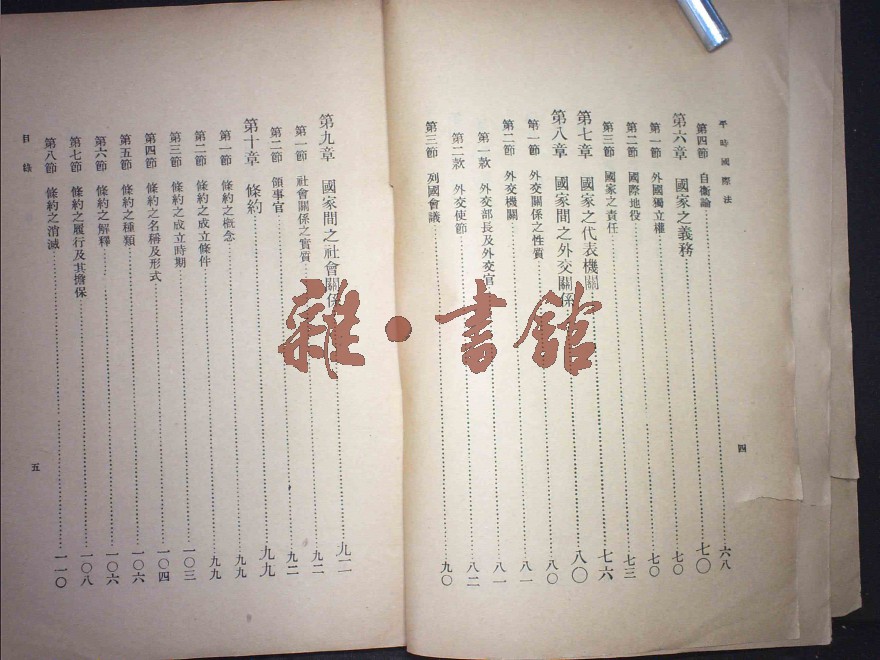 平時國際法
第四節 自衞論 六八
第六章 國家之義務 七〇
第一節 外國獨立權 七〇
第二節 國際地役 七〇
第三節 國家之責任 七三
第七章 國家之代表機關 七六
第八章 國家間之外交關係 八〇
第一節 外交關係之性質 八〇
第二節 外交機關 八一
第一款 外交部長及外交官 八一
第二款 外交使節 八二
第三節 列國會議 九〇
四
第九章 國家間之社會關係 九二
第一節 社會關係之實質 九二
第二節 領事官 九二
第十章 條約 九九
第一節 條約之概念 九九
第二節 條約之成立條件 九九
第三節 條約之成立時期 一〇三
第四節 條約之名稱及形式 一〇四
第五節 條約之種類 一〇六
第六節 條約之解釋 一〇六
第七節 條約之履行及其擔保 一〇八
第八節 條約之消滅 一一〇
目錄
五
雜·書館